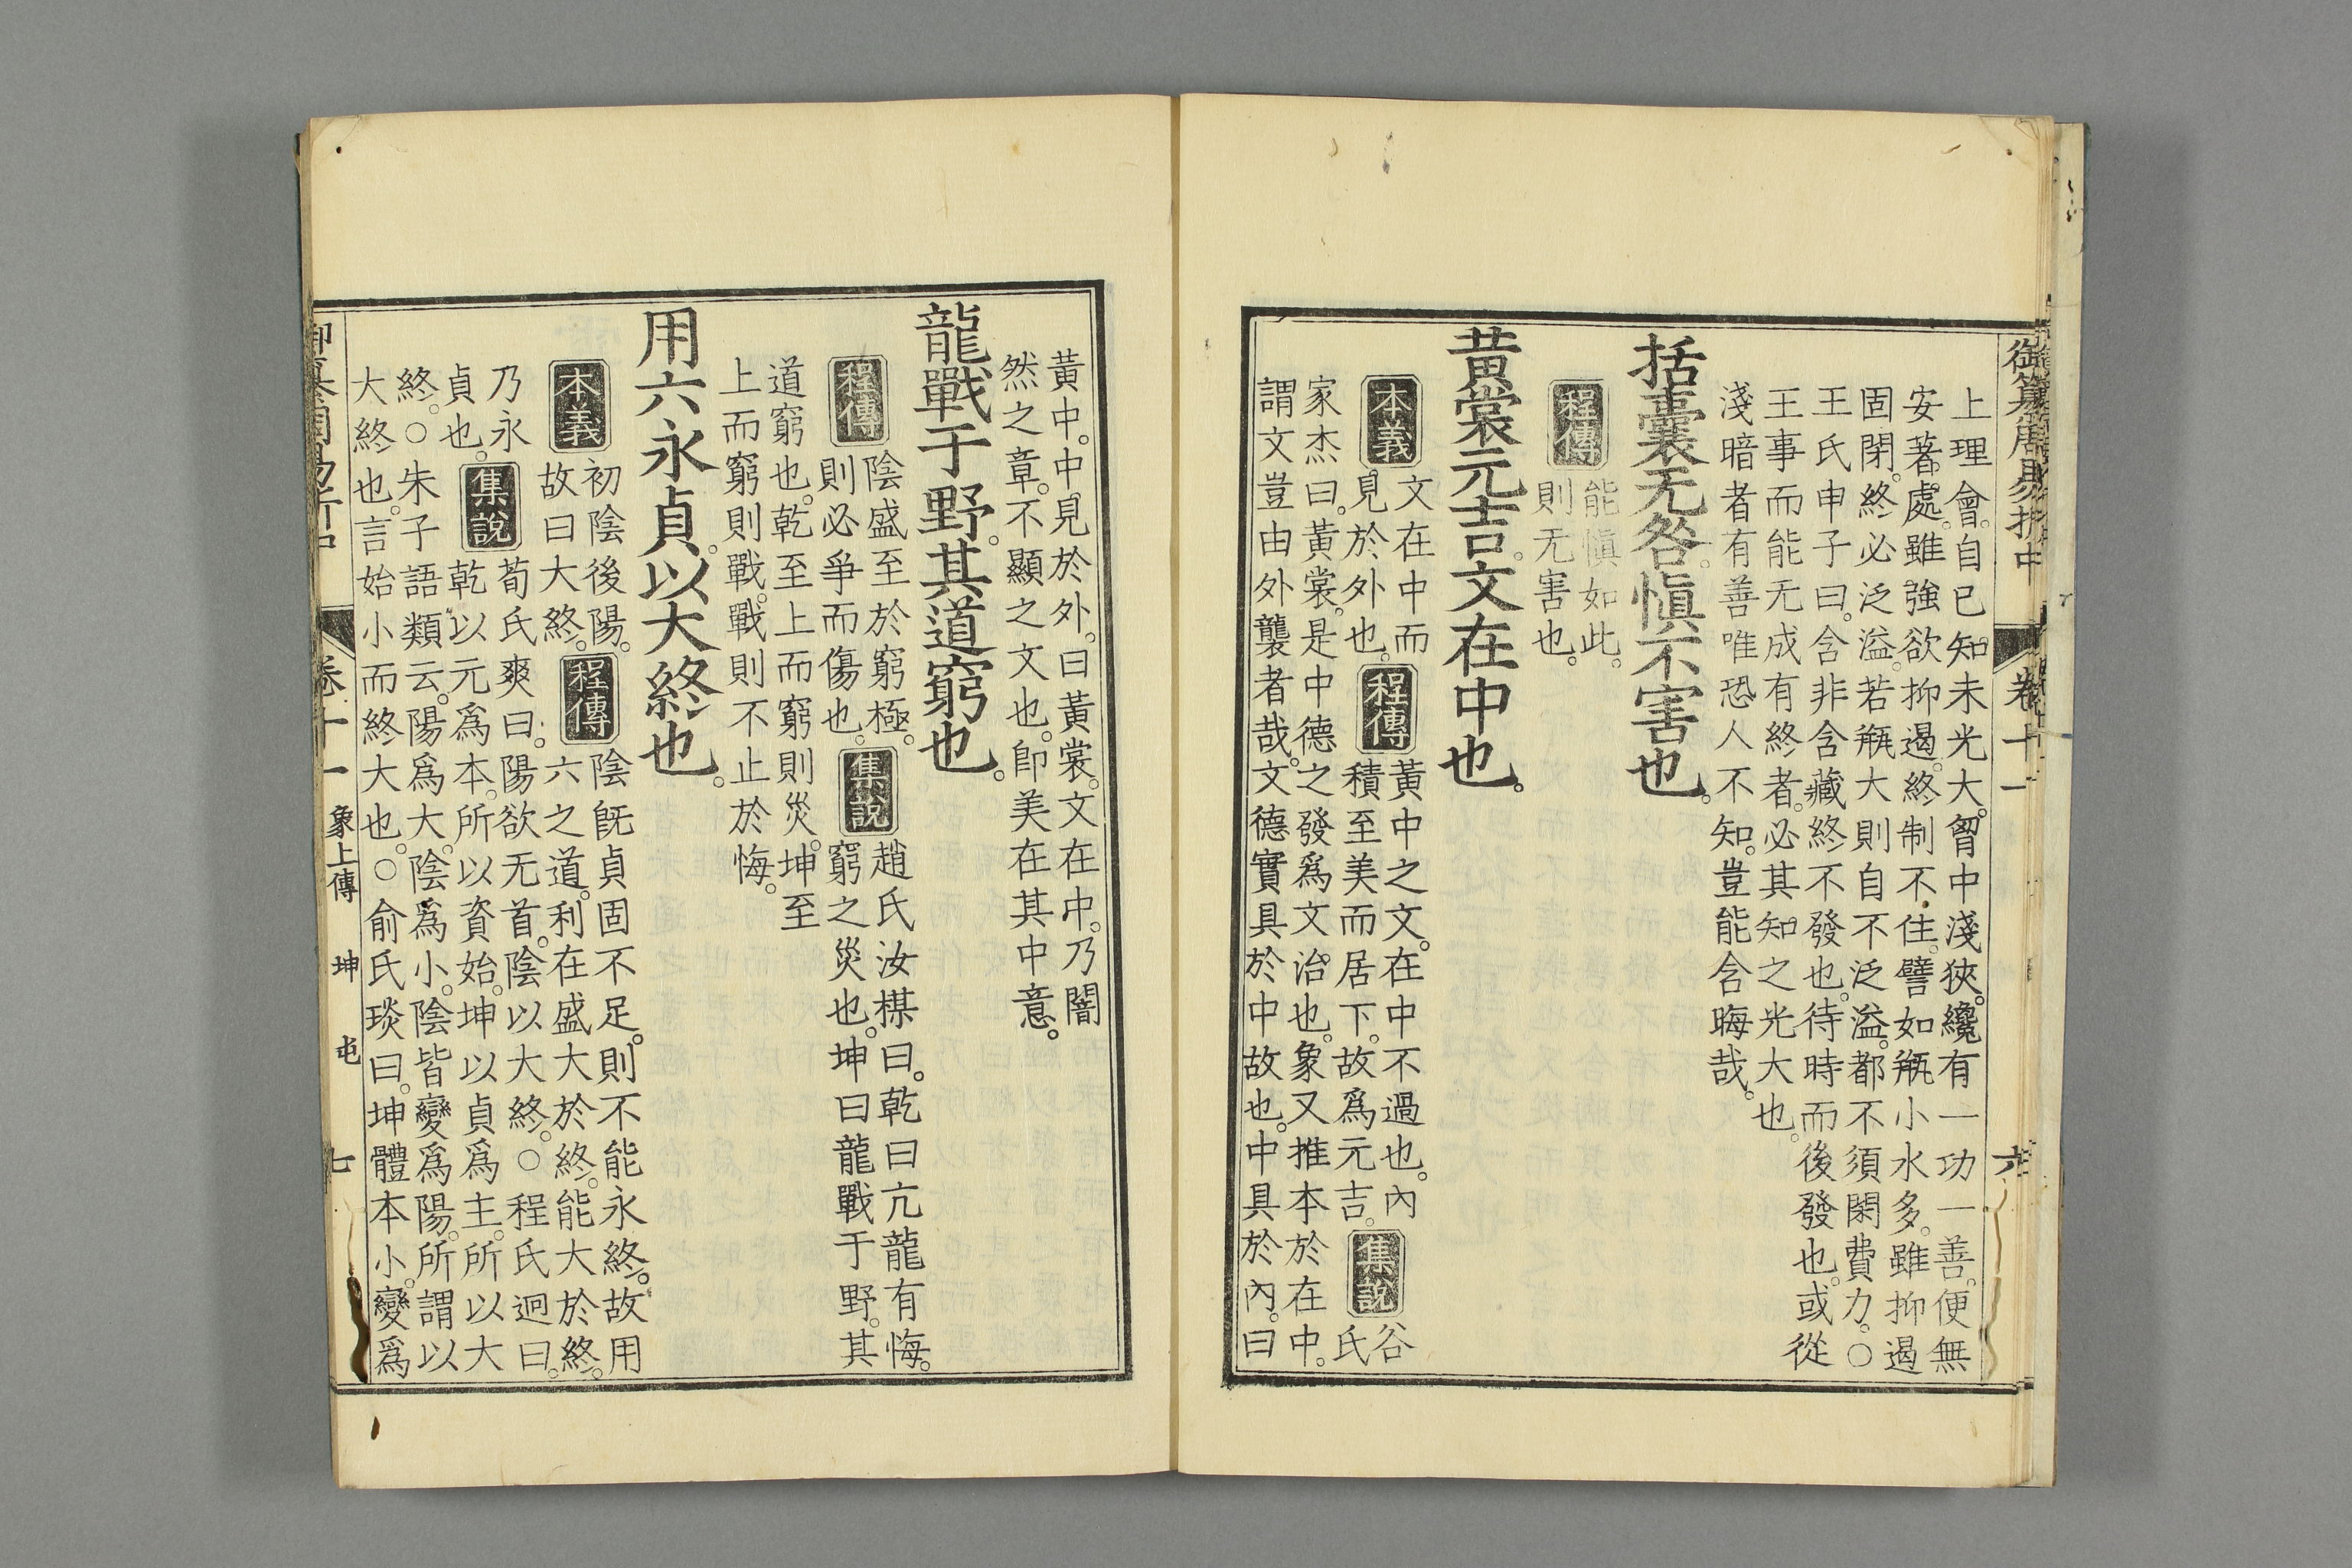 御纂周易折中 卷十一 六
上理會。自已知未光大。胷中淺狹。纔有一功一善。便無
安著處。雖強欲抑遏。終制不住。譬如瓶小水多。雖抑遏
固閉。終必泛溢。若瓶大則自不泛溢。都不須閑費力。○
王氏申子曰。含非含藏終不發也。待時而後發也。或從
王事而能无成有終者。必其知之光大也。
淺暗者有善唯恐人不知。豈能含晦哉。
括囊无咎。愼不害也。
程傳 能愼如此。
則无害也。
黃裳元吉。文在中也。
本義 文在中而
見於外也。
程傳 黃中之文。在中不過也。內
積至美而居下。故爲元吉。
集說 谷
氏
家杰曰。黃裳。是中德之發爲文治也。象又推本於在中。
謂文豈由外襲者哉。文德實具於中故也。中具於內。曰
黃中。中見於外。曰黃裳。文在中。乃闇
然之章。不顯之文也。卽美在其中意。
龍戰于野。其道窮也。
程傳 陰盛至於窮極。
則必爭而傷也。
集說 趙氏汝楳曰。乾曰亢龍有悔。
窮之災也。坤曰龍戰于野。其
道窮也。乾至上而窮則災。坤至
上而窮則戰。戰則不止於悔。
用六永貞。以大終也。
本義 初陰後陽。
故曰大終。
程傳 陰旣貞固不足。則不能永終。故用
六之道。利在盛大於終。能大於終。
乃永
貞也。
集說 荀氏爽曰。陽欲无首。陰以大終。○程氏迥曰。
乾以元爲本。所以資始。坤以貞爲主。所以大
終。○朱子語類云。陽爲大。陰爲小。陰皆變爲陽。所謂以
大終也。言始小而終大也。○俞氏琰曰。坤體本小。變爲
卷十一 象上傳 坤 屯 七